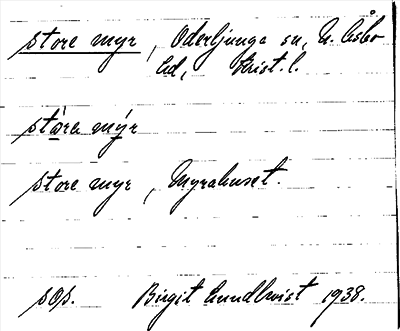 store myr, Oderljunga sn, N. Åsbo
hd, Krist. l.
stòra mýr
store myr, Myrahuset.
sOs. Birgit Lundkvist 1938.